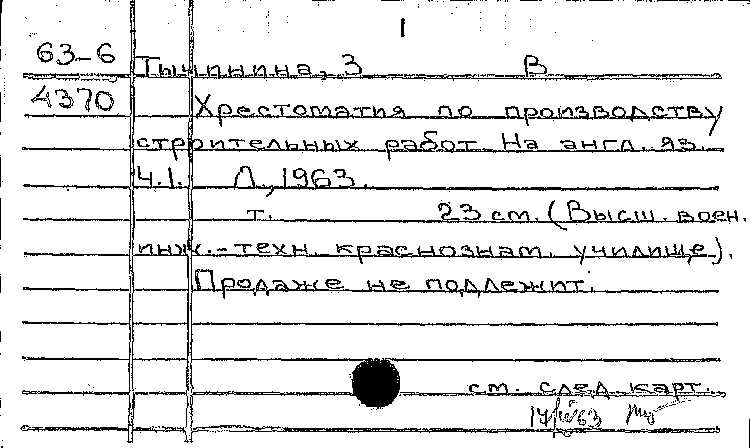 1
63-6 Тынинина, З В
4370 Хрестоматия по производству
строительных работ. На англ. яз.
Ч.1. Л., 1963.
т. 23 см. (Высш. воен.
инж.-техн. краснознам. училище).
Продаже не подлежит.
см. след. карт.